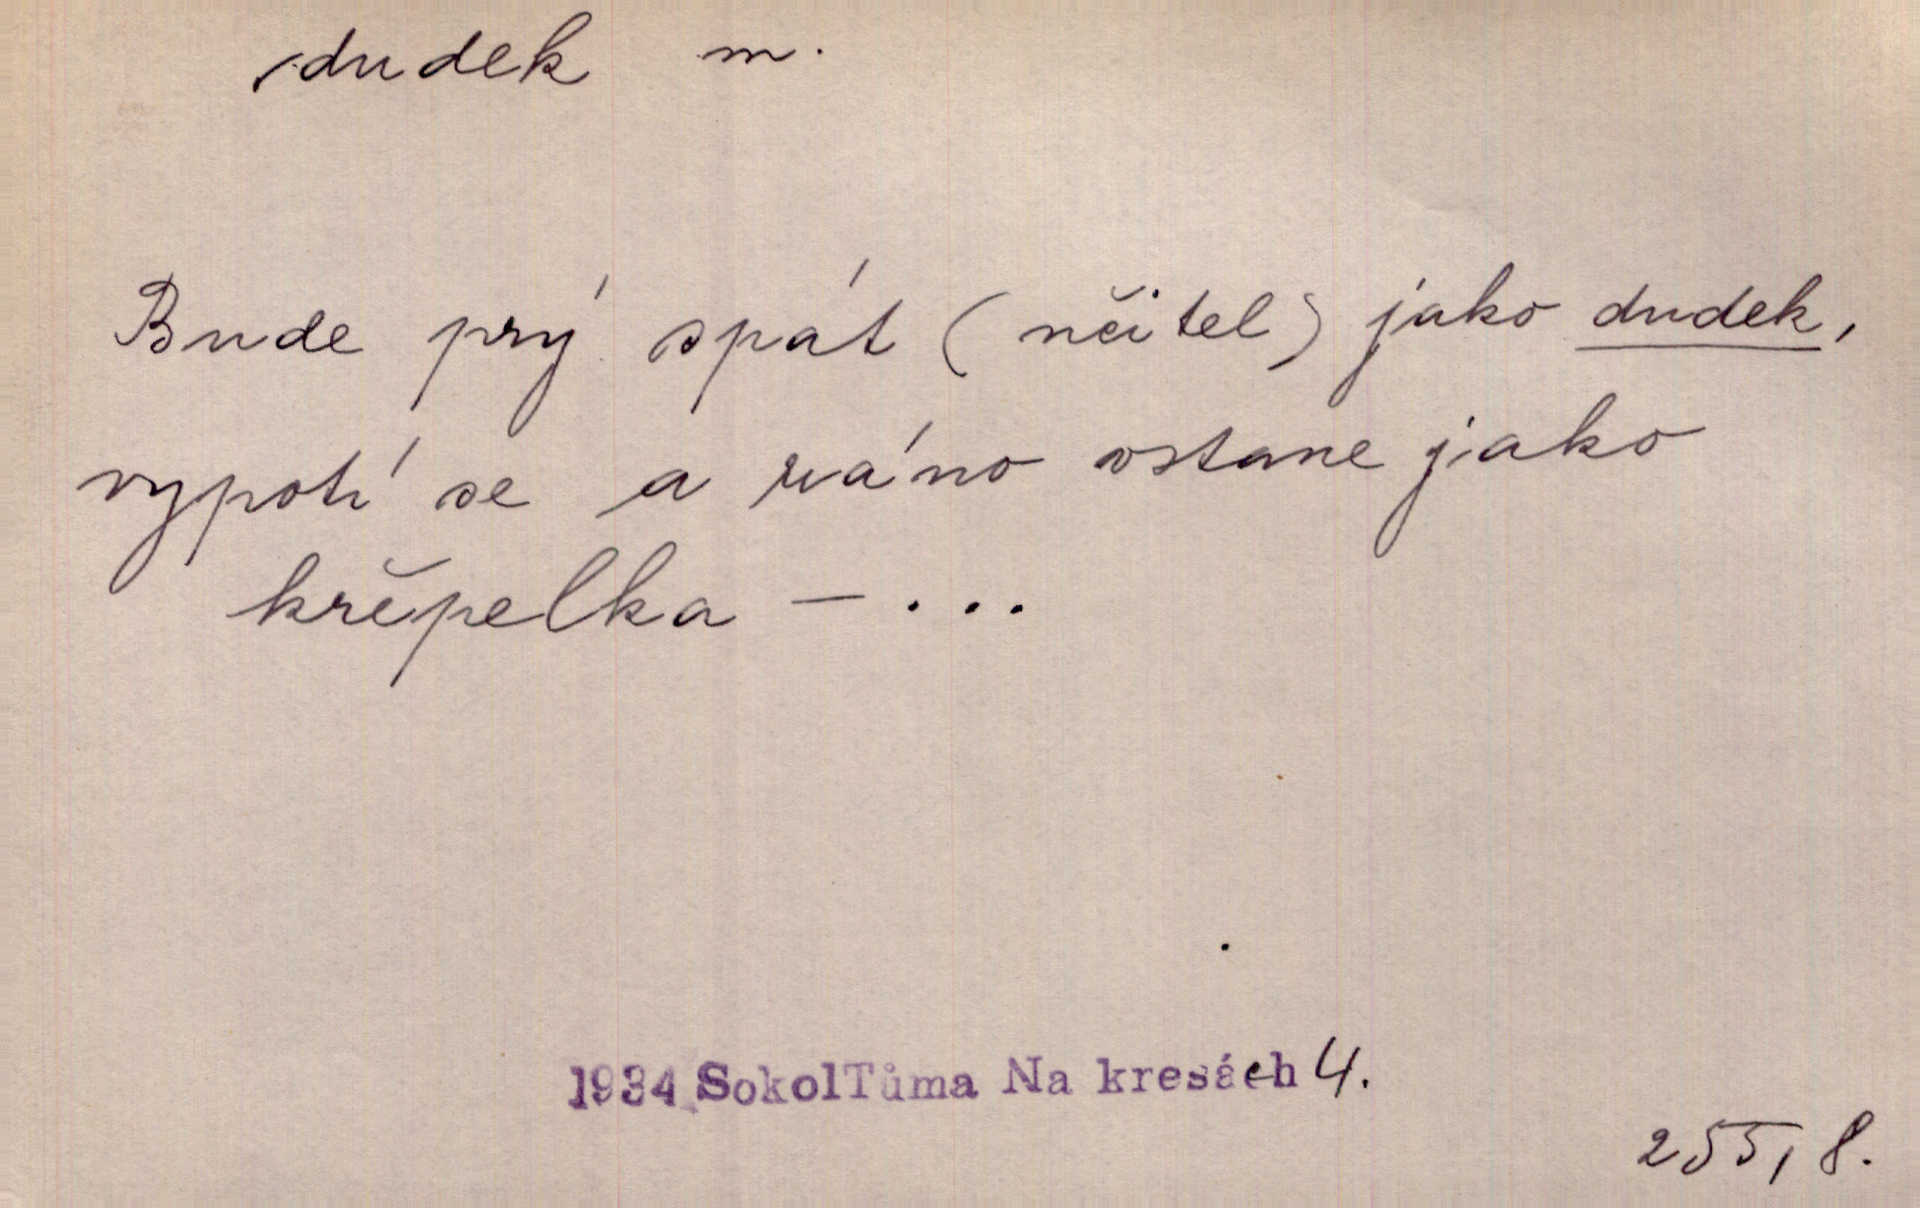 dudek m.
Bude prý spát (učitel) jako dudek,
vypotí se a ráno vstane jako
křepelka - ...
1934 SokolTůma Na kresách 4.
255, 8.